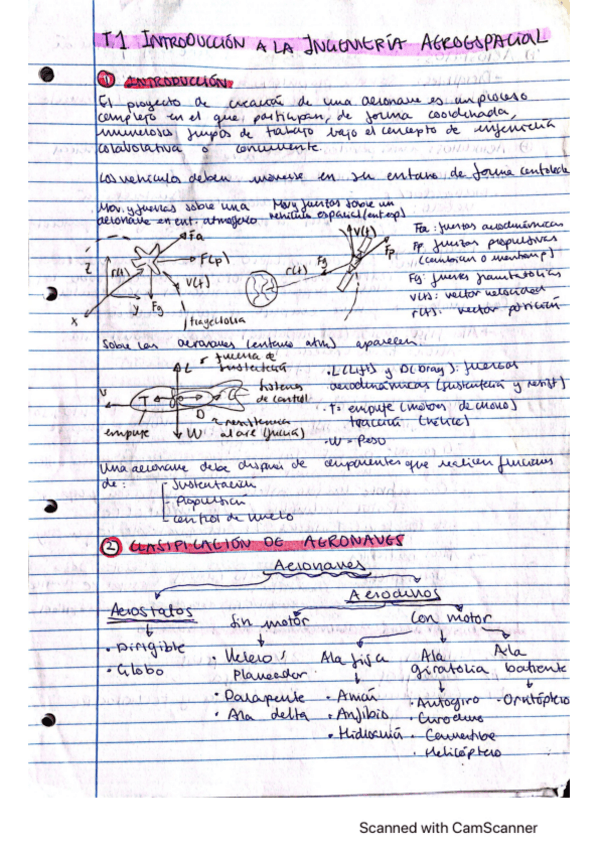 T1 INTRODUCCIÓN A LA INGENIERÍA AEROESPACIAL
① INTRODUCCIÓN
El proyecto de creación de una aeronave es un proceso
complejo en el que participan, de forma coordinada,
numerosos grupos de trabajo bajo el concepto de ingeniería
colaborativa o concurrente.
Los vehículos deben moverse en su entorno de forma controlada
Mov. y fuerzas sobre una
aeronave en ent. atmosférico
Mov y fuerzas sobre un
vehículo espacial (ent esp)
Fa: fuerzas aerodinámicas
Fp fuerzas propulsivas
(cambian o mantienen)
Fg: fuerzas gravitatorias
V(t): vector velocidad
r(t): vector posición
Fa
F(p)
V(t)
Fg
r(t)
z
x
y
trayectoria
V(t)
Fp
Fg
r(t)
Sobre las aeronaves (entorno atm) aparecen:
L fuerza de
sustentación
sistemas
de control
V
T
D
empuje
W
resistencia
al aire (fuerza)
· L (Lift) y D (Drag): fuerzas
aerodinámicas (sustentación y resist)
· T = empuje (motores de chorro)
tracción (hélice)
· W = Peso
Una aeronave debe disponer de componentes que realicen funciones
de:
- Sustentación
- Propulsión
- Control de vuelo
② CLASIFICACIÓN DE AERONAVES
Aeronaves
Aerostatos
Aerodinos
Sin motor
Con motor
· Dirigible
· Globo
· Velero /
Planeador
· Parapente
· Ala delta
Ala fija
· Avión
· Anfibio
· Hidroavión
Ala
giratoria
· Autogiro
· Girodino
· Convertible
· Helicóptero
Ala
batiente
· Ornitóptero
Scanned with CamScanner